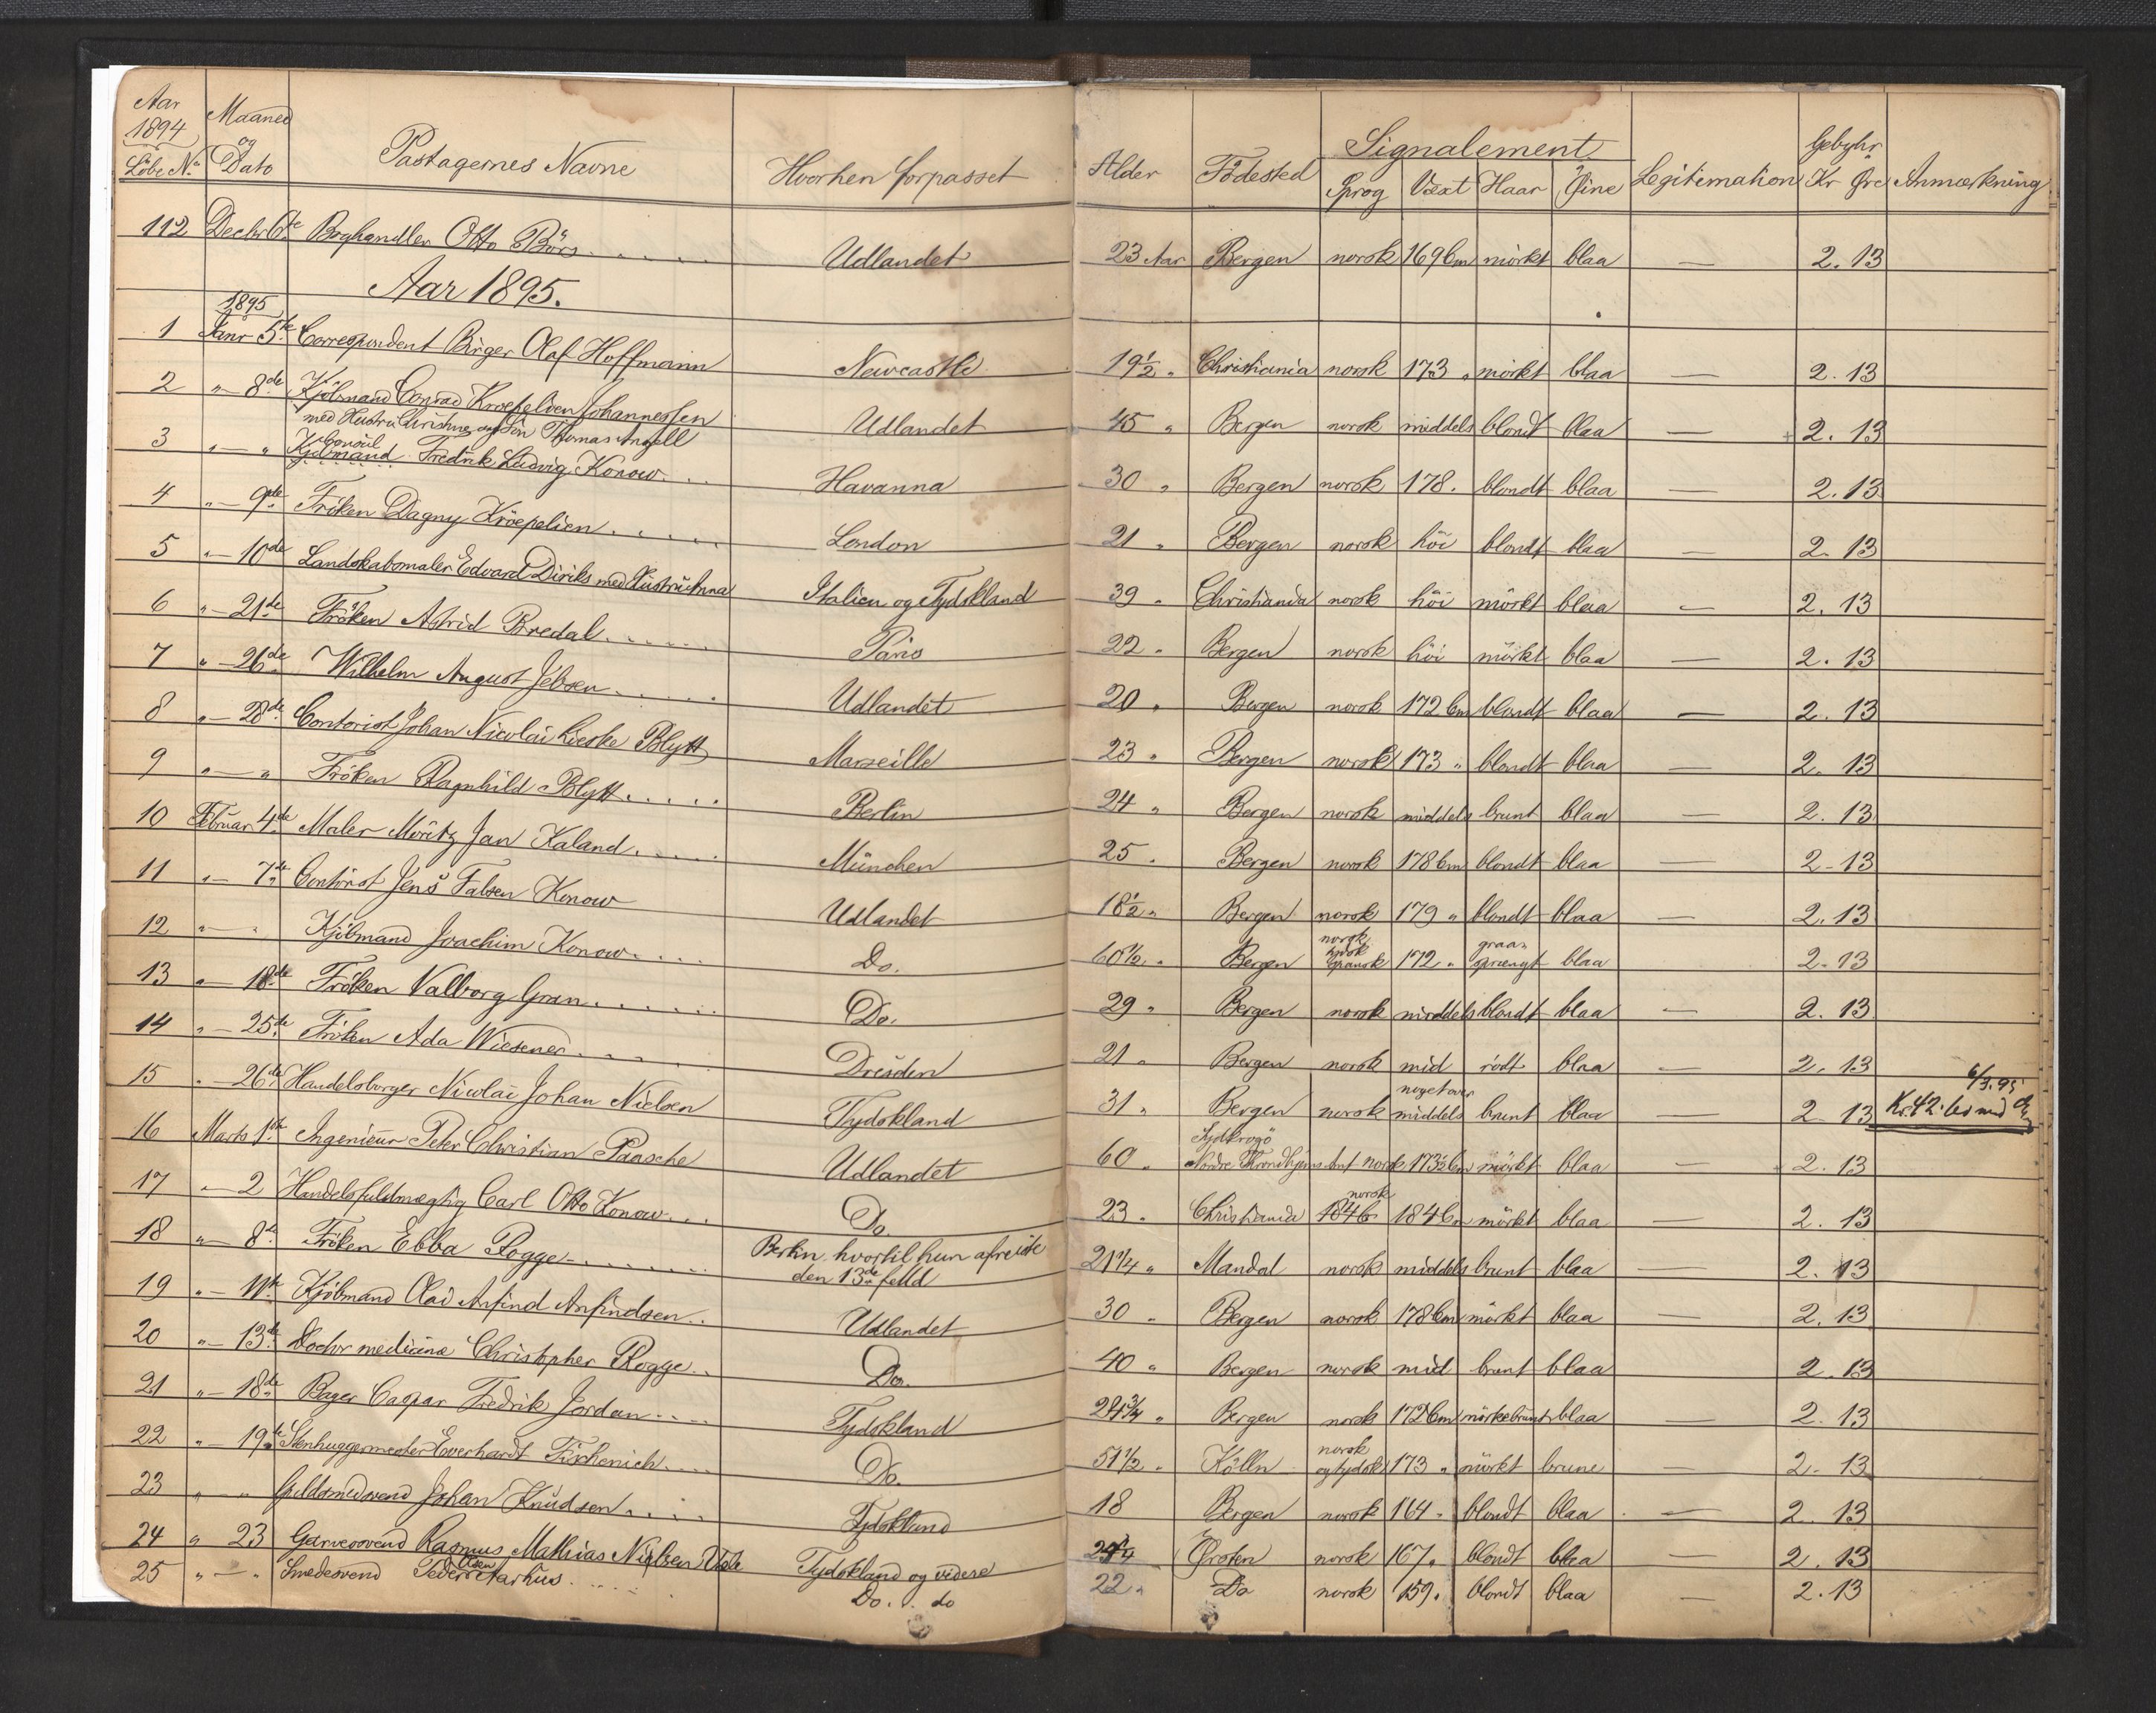 Aar 1894 Maaned og Dato
Löbe No. Passagernes Navne Hvorhen forpasset Alder Födested Signalement Sprog Væxt Haar Øine Legitimation Gebyhr Kr Øre Anmærkning
112 Decbr 6te Boghandler Otto Börs Udlandet 23 Aar Bergen norsk 169 Cm mörkt blaa — 2.13
Aar 1895.
1895
1 Janr 5te Correspondent Birger Olaf Hoffmann Newcastle 19½ " Christiania norsk 173 " mörkt blaa — 2.13
2 " — 8de Kjöbmand Conrad Kroepelien Johannessen Udlandet 45 " Bergen norsk middels blondt blaa — 2.13
med Hustru Christine og Sön Thomas Angell
3 " — " Consul Kjöbmand Fredrik Ludvig Konow Havanna 30 " Bergen norsk 178 " blondt blaa — 2.13
4 " — 9de Fröken Dagny Kröepelien London 21 " Bergen norsk höi blondt blaa — 2.13
5 " — 10de Landskabsmaler Edvard Diriks med Hustru Anna Italien og Tydskland 39 " Christiania norsk höi mörkt blaa — 2.13
6 " — 21de Fröken Astrid Bredal Paris 22 " Bergen norsk höi mörkt blaa — 2.13
7 " — 26de Wilhelm August Jebsen Udlandet 20 " Bergen norsk 172 Cm blondt blaa — 2.13
8 " — 28de Contorist Johan Nicolai Blytt Marseille 23 " Bergen norsk 173 " blondt blaa — 2.13
9 " — " Fröken Ragnhild Blytt Berlin 24 " Bergen norsk middels brunt blaa — 2.13
10 Februar 4de Maler Moritz Jan Kaland München 25 " Bergen norsk 178 Cm blondt blaa — 2-13
11 " — 7de Contorist Jens Falsen Konow Udlandet 18½ " Bergen norsk 179 " blondt blaa — 2.13
12 " — " Kjöbmand Joachim Konow Do. 60½ " Bergen norsk tydsk spansk 172 " graasprængt blaa 2-13
13 " — 18de Fröken Valborg Gran Do. 29 " Bergen norsk middels blondt blaa — 2.13
14 " — 25de Fröken Ada Wiesener Dresden 21 " Bergen norsk mid rödt blaa — 2.13
15 " — 26de Handelsborger Nicolai Johan Nielsen Tydskland 31 " Bergen norsk noget over middels brunt blaa — 2-13 6/3.95 Kr. 42
16 Marts 1ste Ingenieur Peter Christian Paasche Udlandet 60 " Nordre Throndhjems Amt norsk 173½ Cm mörkt blaa — 2.13
17 " — 2 Handelsfuldmægtig Carl Otto Konow Do. 23 " Christiania norsk 184 Cm mörkt blaa — 2.13
18 " — 8de Fröken Ebba Rogge Berlin hvortil hun afreiste den 13de 21¼ " Mandal norsk middels brunt blaa — 2.13
19 " — 11te Kjöbmand Olai Anfind Anfindsen Udlandet 30 " Bergen norsk 178 Cm mörkt blaa — 2.13
20 " — 13de Doctor medicinæ Christopher Rogge Do. 40 " Bergen norsk mid brunt blaa 2.13
21 " — 18de Bager Caspar Fredrik Jordan Tydskland 24¾ " Bergen norsk 172 Cm mörkebrunt blaa — 2.13
22 " — 19de Stenhuggermester Everhardt Fischenich Do. 51½ " Kölln norsk og tydsk 173 " mörkt brune — 2-13
23 " — " Guldsmedsvend Johan Knudsen Tydskland 18 Bergen norsk 164 " blondt blaa — 2.13
24 " 23 Garversvend Rasmus Mathias Nielsen Tydskland og videre Örsten norsk 167 " blondt blaa — 2.13
25 " — " Smedesvend Peder Olsen Aarhus Do. . do 22 " Do norsk 159 " blondt blaa — 2.13